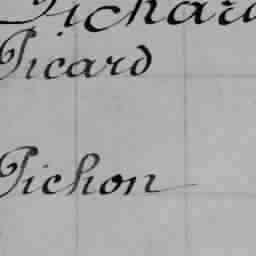 Pichard
Picard
Pichon